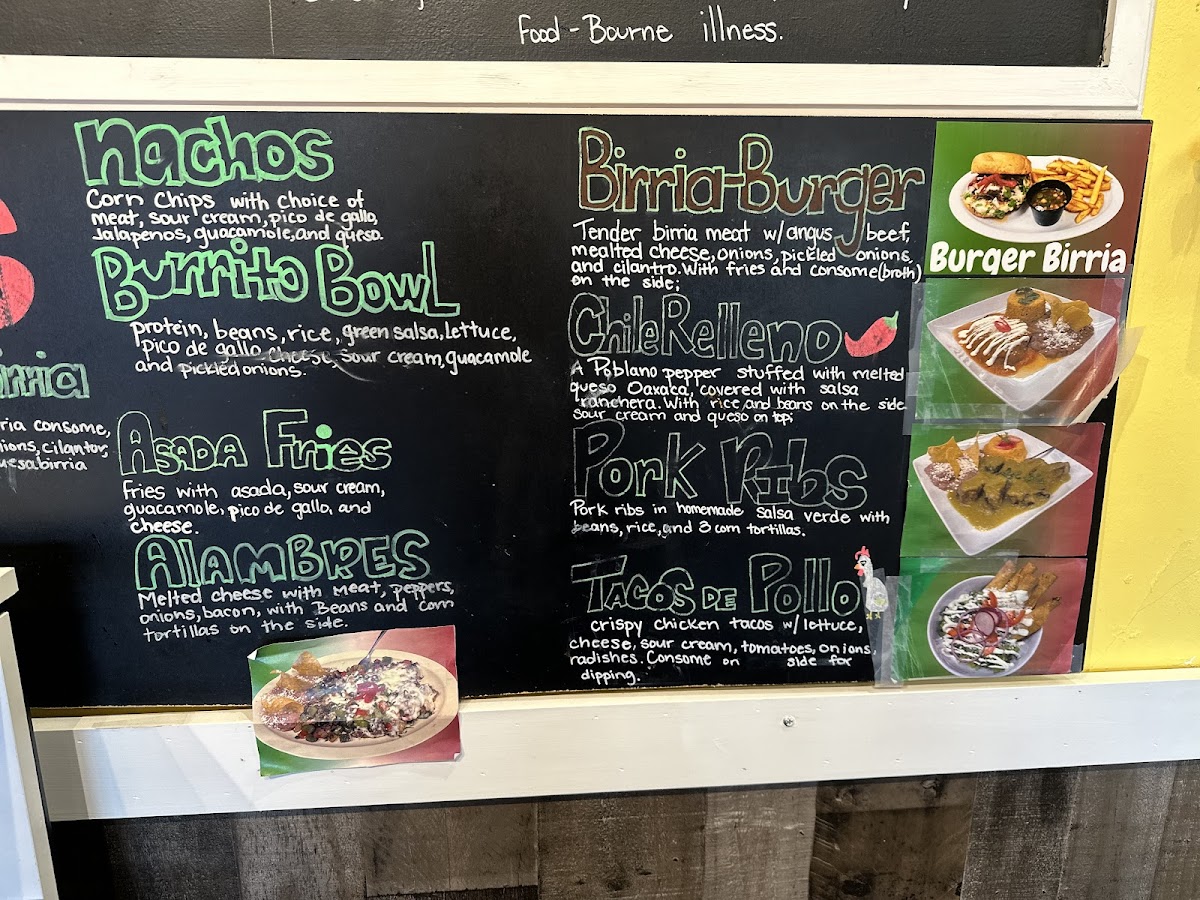 Food-Bourne illness.
nachos
Corn Chips with choice of
meat, sour cream, pico de gallo,
Jalapenos, guacamole, and queso.
Burrito Bowl
protein, beans, rice, green salsa, lettuce,
pico de gallo, cheese, sour cream, guacamole
and pickled onions.
irria
ria consome,
ions, cilantor,
uesabirria
Asada Fries
Fries with asada, sour cream,
guacamole, pico de gallo, and
cheese.
AlAMBRES
Melted cheese with meat, peppers,
onions, bacon, with Beans and corn
tortillas on the side.
Birria-Burger
Tender birria meat w/ angus beef,
mealted cheese, onions, pickled onions,
and cilantro. With fries and consome(broth)
on the side;
Burger Birria
Chile Relleno
A Poblano pepper stuffed with melted
queso Oaxaca, covered with salsa
ranchera. With rice and beans on the side
sour cream and queso on top;
Pork Ribs
Pork ribs in homemade salsa verde with
beans, rice, and 3 corn tortillas.
Tacos de Pollo
crispy chicken tacos w/ lettuce,
cheese, sour cream, tomatoes, onions,
radishes. Consome on side for
dipping.